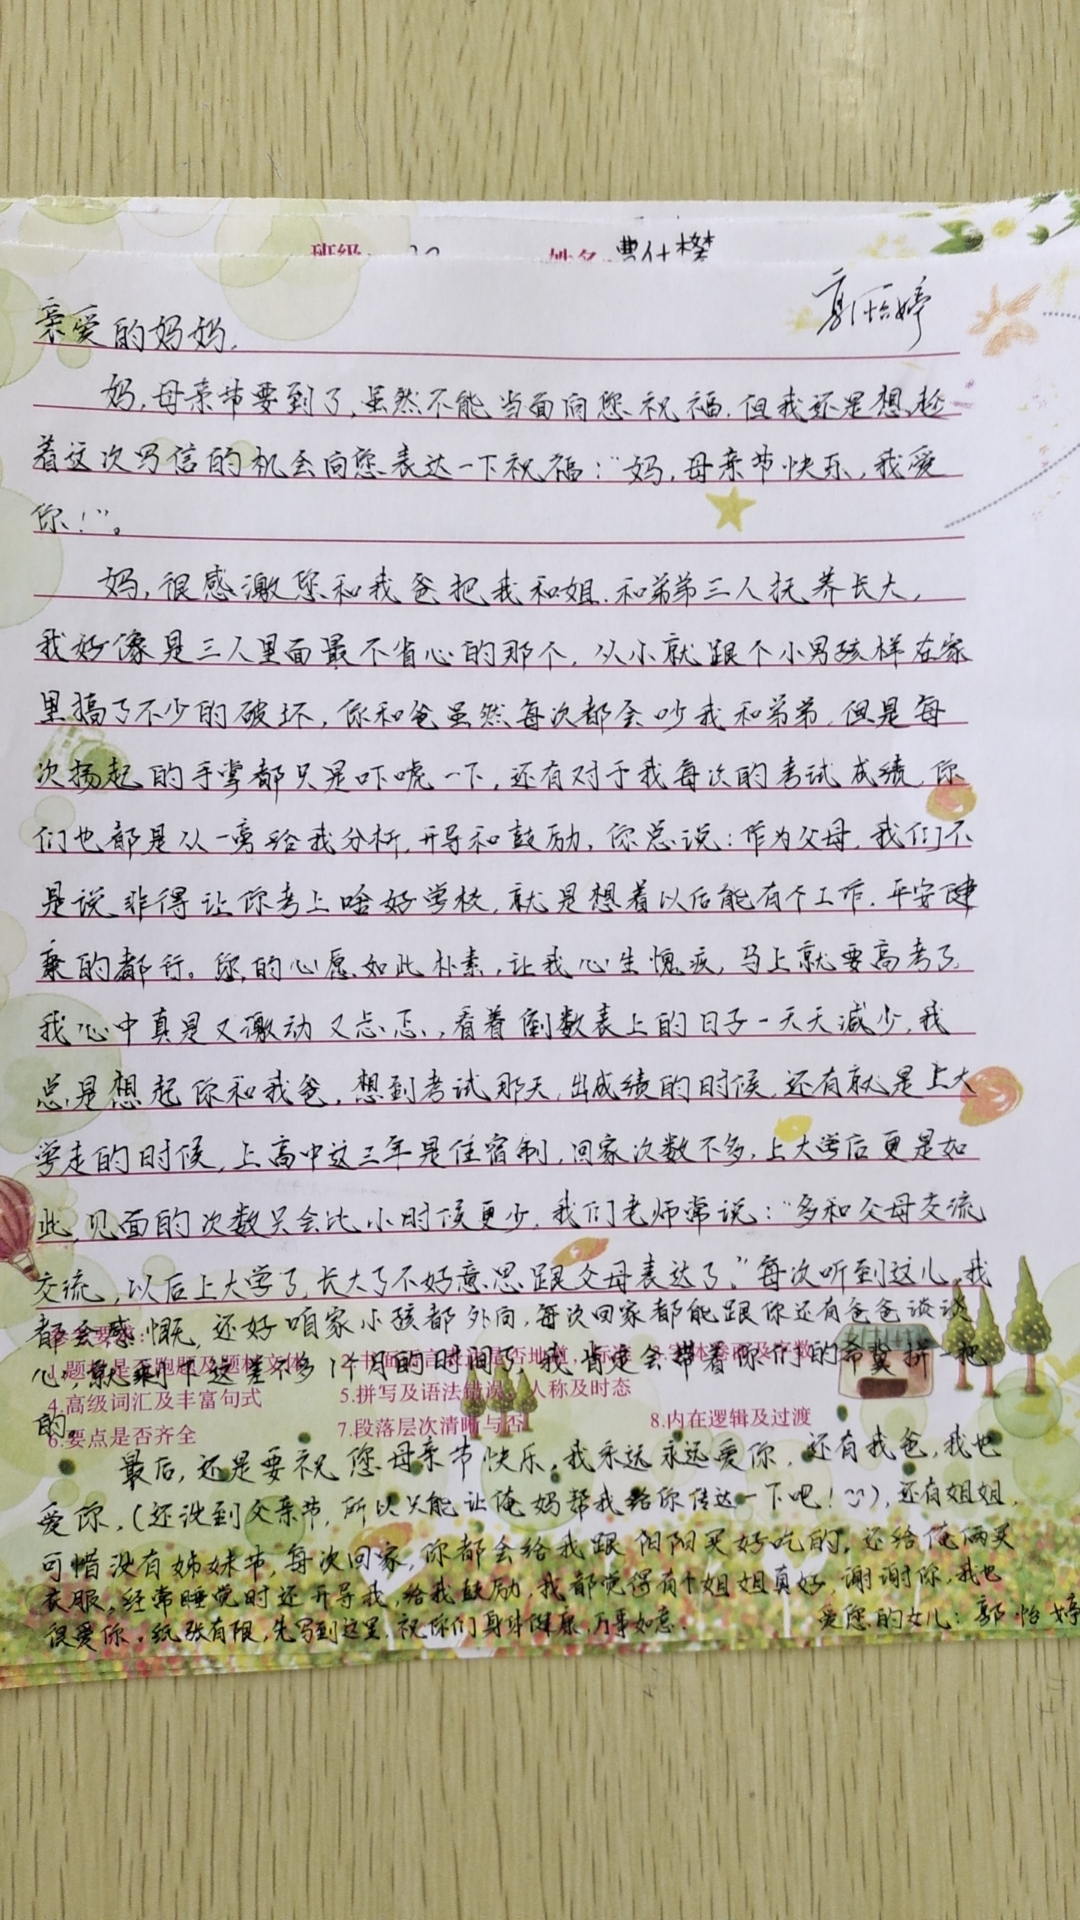 班级 姓名 曹
郭怡婷
亲爱的妈妈,
妈,母亲节要到了,虽然不能当面向您祝福,但我还是想趁
着这次写信的机会向您表达一下祝福:“妈,母亲节快乐,我爱
你!”。
妈,很感激您和我爸把我和姐、和弟弟三人抚养长大,
我好像是三人里面最不省心的那个,从小就跟个小男孩样在家
里搞了不少的破坏,你和爸虽然每次都会吵我和弟弟,但是每
次扬起的手掌都只是吓唬一下,还有对于我每次的考试成绩,你
们也都是从一旁给我分析,开导和鼓励,你总说:作为父母,我们不
是说非得让你考上啥好学校,就是想着以后能有个工作,平安健
康的都行。您的心愿如此朴素,让我心生愧疚,马上就要高考了
我心中真是又激动又忐忑,看着倒数表上的日子一天天减少,我
总是想起你和我爸,想到考试那天,出成绩的时候,还有就是上大
学走的时候,上高中这三年是住宿制,回家次数不多,上大学后更是如
此,见面的次数只会比小时候更少,我们老师常说:“多和父母交流
交流,以后上大学了,长大了不好意思跟父母表达了。”每次听到这儿,我
都会感慨,还好咱家小孩都外向,每次回家都能跟你还有爸爸谈谈
心,就剩下这差不多1个月的时间了,我肯定会带着你们的希冀拼一把
的。
1.题材是否跑题及题材文体
4.高级词汇及丰富句式 5.拼写及语法错误、人称及时态
6.要点是否齐全 7.段落层次清晰与否 8.内在逻辑及过渡
最后,还是要祝您母亲节快乐,我永远永远爱你,还有我爸,我也
爱你,(还没到父亲节,所以只能让俺妈帮我给你传达一下吧!),还有姐姐,
可惜没有姊妹节,每次回家,你都会给我跟阳阳买好吃的,还给俺俩买
衣服,经常睡觉时还开导我,给我鼓励,我都觉得有个姐姐真好,谢谢你,我也
很爱你。纸张有限,先写到这里,祝你们身体健康,万事如意.
爱您的女儿:郭怡婷